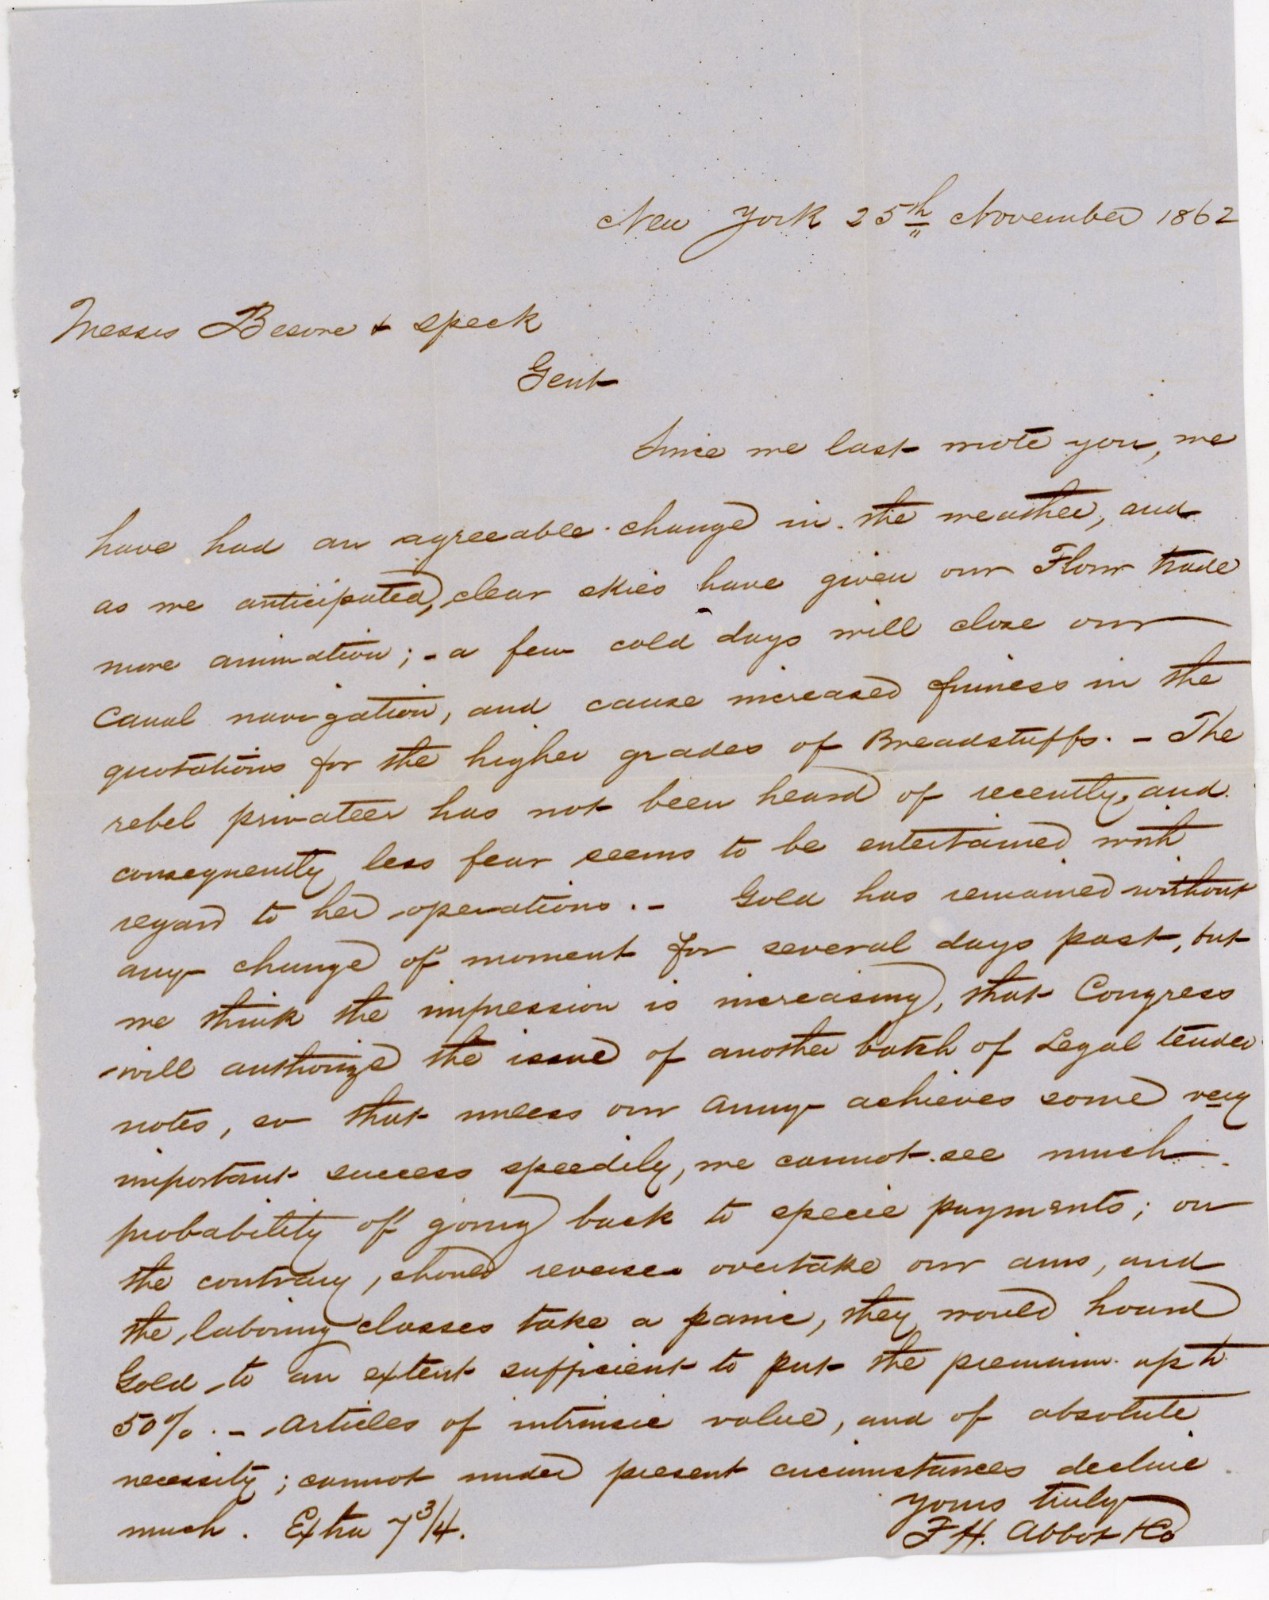 New York 25th November 1862
Messrs Besore & Speck
Gent
Since we last wrote you, we
have had an agreeable change in the weather, and
as we anticipated, clear skies have given our Flour trade
more animation; - a few cold days will close our
Canal navigation, and cause increased firmness in the
quotations for the higher grades of Breadstuffs. - The
rebel privateer has not been heard of recently, and
consequently less fear seems to be entertained with
regard to her operations. - Gold has remained without
any change of moment for several days past, but
we think the impression is increasing, that Congress
will authorize the issue of another batch of Legal tender
notes, so that unless our Army achieves some very
important success speedily, we cannot see much
probability of going back to specie payments; on
the contrary, should reverses overtake our arms, and
the laboring classes take a panic, they would hoard
Gold to an extent sufficient to put the premium up to
50%. - Articles of intrinsic value, and of absolute
necessity; cannot under present circumstances decline
much. Extra 7 3/4.
Yours truly
F H. Abbot & Co